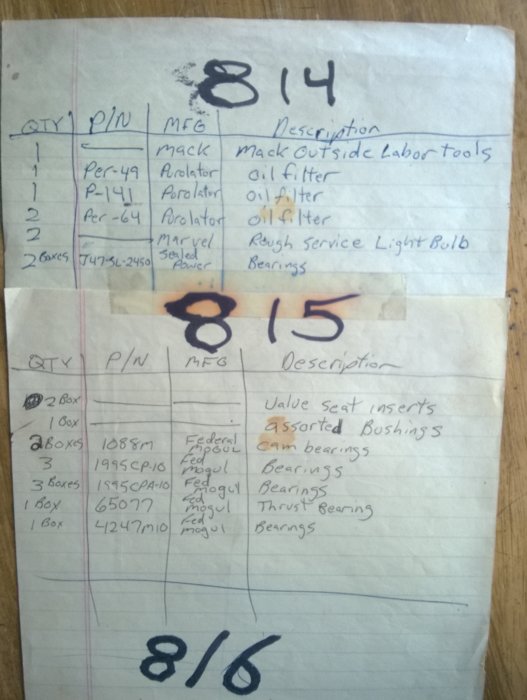 814
QTY P/N MFG Description
1 Mack Mack Outside Labor Tools
1 Per-49 Purolator oil filter
1 P-141 Purolator oil filter
2 Per-64 Purolator oil filter
2 Marvel Rough Service Light Bulb
2 Boxes Sealed Power Bearings
815
QTY P/N MFG Description
2 Box Value seat inserts
1 Box assorted Bushings
2 Boxes 1088M Federal Mogul cam bearings
3 1995CP-10 Fed mogul Bearings
3 Boxes 1995CPA-10 Fed mogul Bearings
1 Box 65077 Fed mogul Thrust Bearing
1 Box 4247M10 Fed mogul Bearings
816